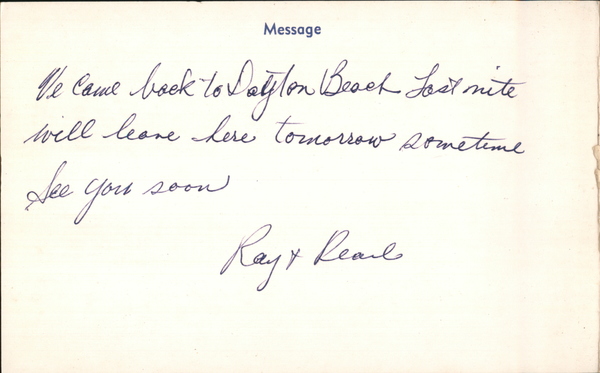 Message
We came back to Daytona Beach Last nite
will leave here tomorrow sometime
See you soon
Ray + Pearl